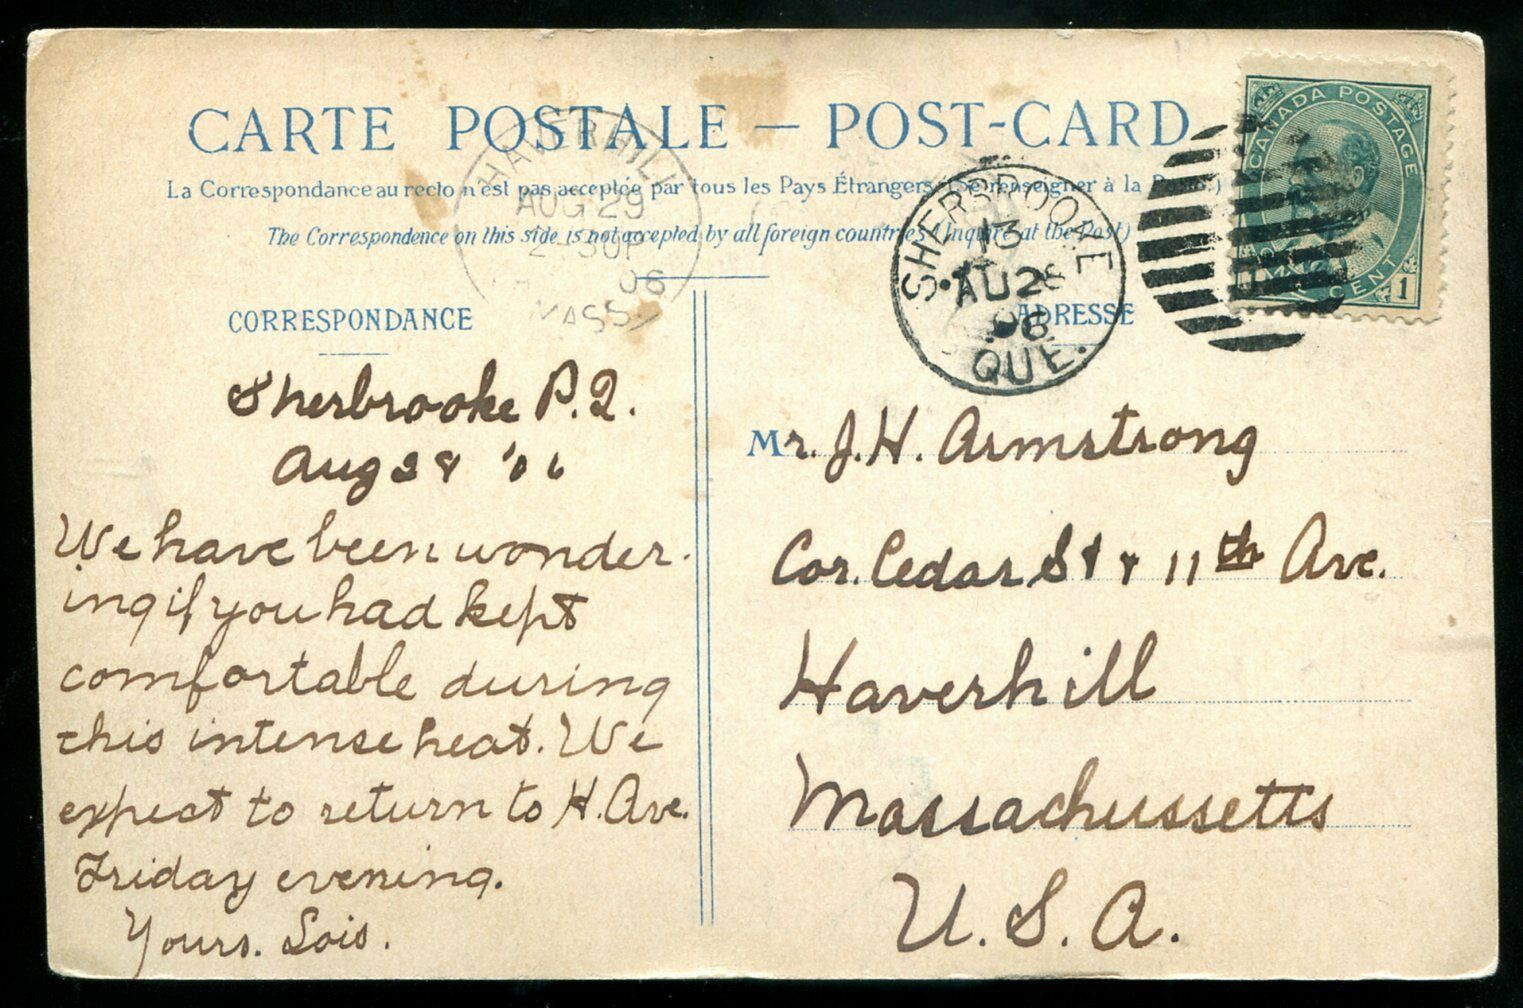 CARTE POSTALE — POST-CARD
La Correspondance au recto n'est pas acceptée par tous les Pays Étrangers (Se renseigner à la Poste.)
The Correspondence on this side is not accepted by all foreign countries (Inquire at the Post)
HAVERHILL
AUG 29
2 30P
06
MASS
SHERBROOKE
13
AU 28
06
QUE.
CANADA POSTAGE
CENT
1
CORRESPONDANCE
ADRESSE
Sherbrooke P.Q.
Aug 28 '06
We have been wonder-
ing if you had kept
comfortable during
this intense heat. We
expect to return to H. Ave.
Friday evening.
Yours. Lois.
Mr. J. H. Armstrong
Cor. Cedar St & 11th Ave.
Haverhill
Massachussetts
U. S. A.